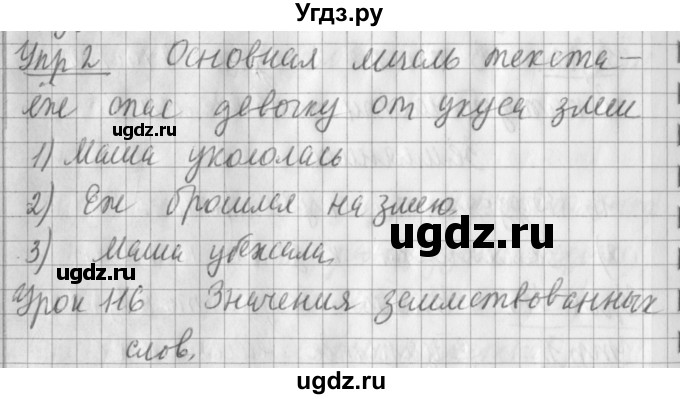 Угдз.ру
Упр 2 Основная мысль текста –
ёж спас девочку от укуса змеи
ugdz.ru
1) Маша укололась
2) Еж бросился на змею.
ugdz.ru
3) Маша убежала.
ugdz.ru
Урок 116 Значения заимствованных
слов.
ugdz.ru